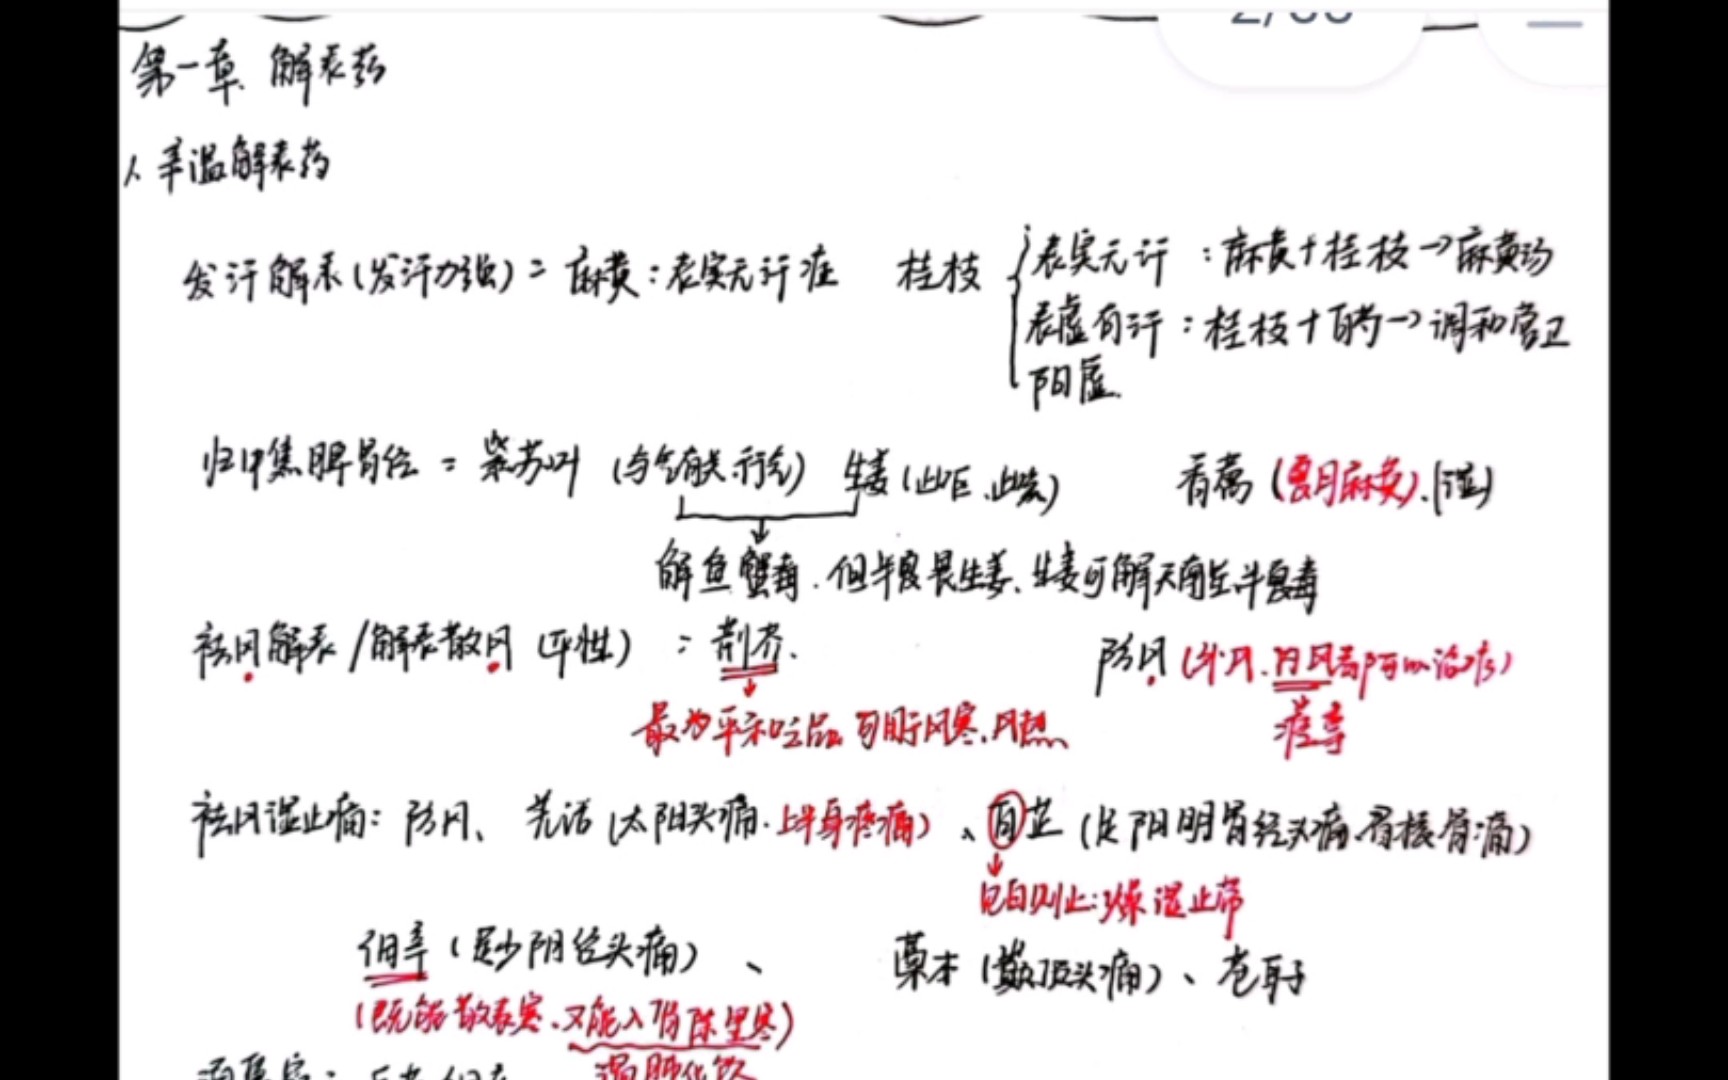 第一章.解表药
1、辛温解表药
发汗解表(发汗力强)= 麻黄:表实无汗症 桂枝
表实无汗:麻黄+桂枝→麻黄汤
表虚有汗:桂枝+白芍→调和营卫
阳虚.
归中焦脾胃经 = 紫苏叶(与气有关.行气) 生姜(止呕、止咳) 香薷(夏月麻黄).(湿)
解鱼蟹毒.但半夏畏生姜、生姜可解天南星半夏毒
祛风解表/解表散风(平性):荆芥. 防风(外风、内风都可以治疗)
最为平和之品 可用于风寒、风热 痉挛
祛风湿止痛:防风、羌活(太阳头痛.上半身疼痛)、白芷(走阳明胃经头痛.眉棱骨痛)
见白则止:燥湿止带
细辛(走少阴经头痛)、 藁本(巅顶头痛)、苍耳子
(既能散表寒、又能入肾除里寒)
温肺化饮